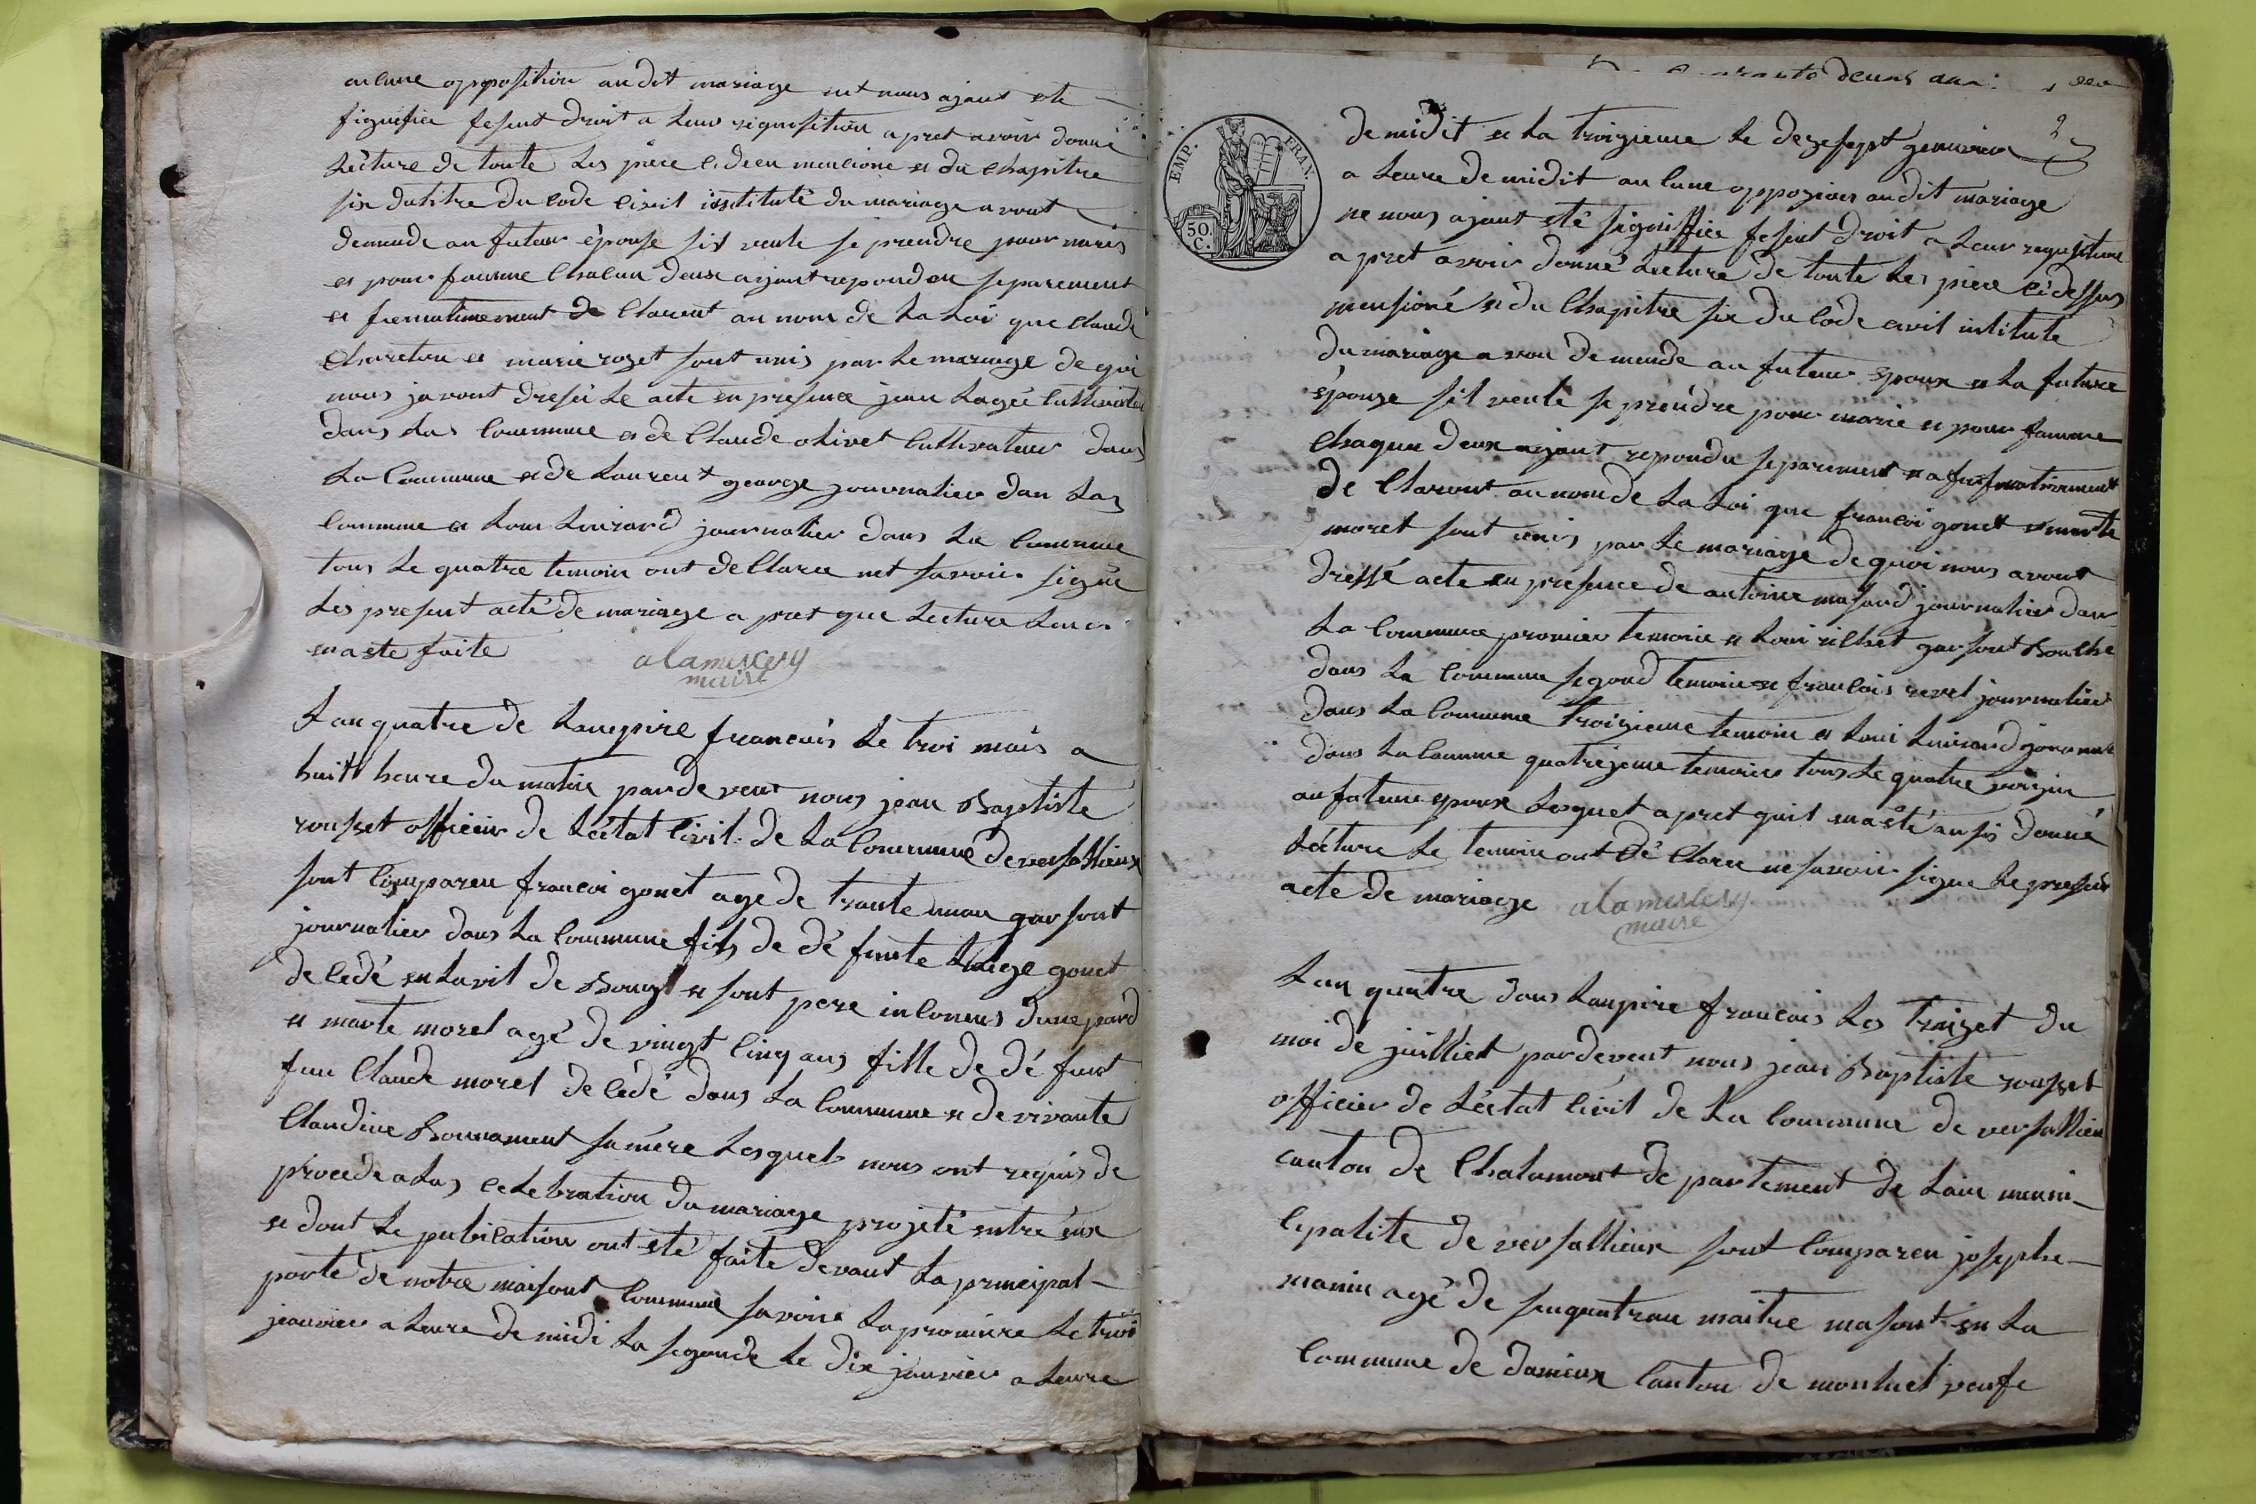 aucune opposition audit mariage net nous ajant ete
signifiee fesent droit a leur requisition apret avoir donné
Lecture de toute Les piece cideçu mencioné et du chapitre
six dutitre du code civil isstitulé du mariage avont
demende au futeur épouse sil veule se prendre pour maris
et pour famme chacun deux ajant repondeu separement
et firmativement de Clarent au nom de La Loi que claude
charetou et marie rozet sont unis par Le mariage de qui
nous javont dresée Le acte en presence jean Lagée Cultivateu
dans Las Commune et de Claude olivet Cultivateur dans
La Commune et de Laurent george journalier dan Las
Commune et Loui Luizard journalier dans La Commune
tous Le quatre temoin ont de Claree net savoir signe
Les present acté de mariage a pret que Lecture Leur
ena ete faite
alamercery
maire
Lan quatre de Lanpire francais Le troi mais a
huit heure du matin pardevent nous jean Baptiste
rousset officier de Léetat Civil de La Commune de versallieux
sont Comparen francoi gonet age de trante un an garsont
journalier dans La Commune fils de dé funte Liaize gonet
de cédé en Lavil de Bourg et sont pere inconnus dune pard
et marte morel agé de vingt Cinq ans fille de dé funt
fuu Claude morel de cédé dans La Commune et de vivante
Claudine Bonnament sa mére Lesquels nous ont requis de
procede a Las celebration du mariage projeté entre eux
et dont Le publication ont été faite devant La principal
porte de notre maisont Commune savoire La promiere Le troi
jeanvier a Leure de midi La segonde Le dix janvier a Leure
deux
de midit et La troizieme Le dezesept genvier
a Leure de midit au Cune oppozicion audit mariage
ne nous ajant eté signiffiée fesent droit a Leur requisition
a pret avoir donné Lecture de toute Les piece cidessus
mensioné et du Chapitre six du Code civil intitulé
du mariage avon demende au futeur Epoux et La future
épouze sil veule se prendre pour marie et pour famme
Chaqun deux ajant repondu separement et afirmativement
de Claront au nom de La Loi que francoi gonet et marte
morel sont unis par Le mariage de quoi nous avont
dressé acte en présence de antoine masard journalier dan
La Commune promier temoin et Loui richet garsont Bouche
dans La Commune segond temoin et francois revel journalier
dans La Commune troizieme temoin et Loui Luizard journal
dans La Commune quatriéme temoin tous Le quatre voizin
au futeur epoux Lesquel apret quil ena été ausis donné
Lécture Le temoin ont dé Claree ne savoir signe Le present
acte de mariage
alamercery
maire
Lan quatre dans Lanpire francais Les Traizet du
moi de juilliet pardevent nous jean Baptiste rousset
officier de Léetat Civil de La Commune de versallieu
canton de Chalamont de partement de Lain muni-
cipalite de versallieux sont Comparen josephe
manin agé de sinquatran maitre masont en La
Commune de danieux Canton de monluel veufe
EMP. FRAN.
50.
C.